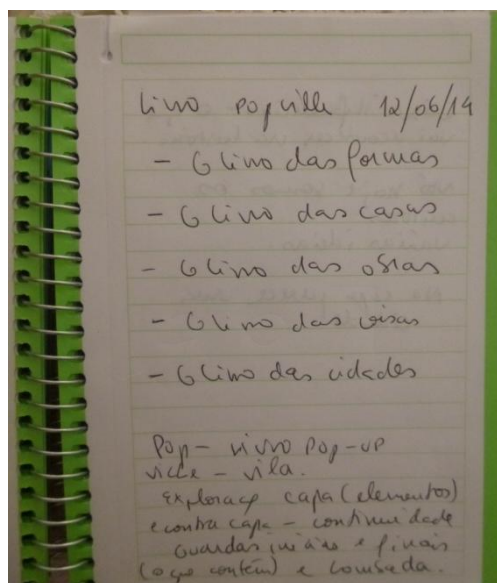 Livro popville 12/06/14
- O livro das formas
- O livro das casas
- O livro das obras
- O livro das coisas
- O livro das cidades
Pop - livro pop-up
ville - vila.
Exploração capa (elementos)
e contra capa - continuidade
Guardas iniciais e finais
(o que contém) e lombada.